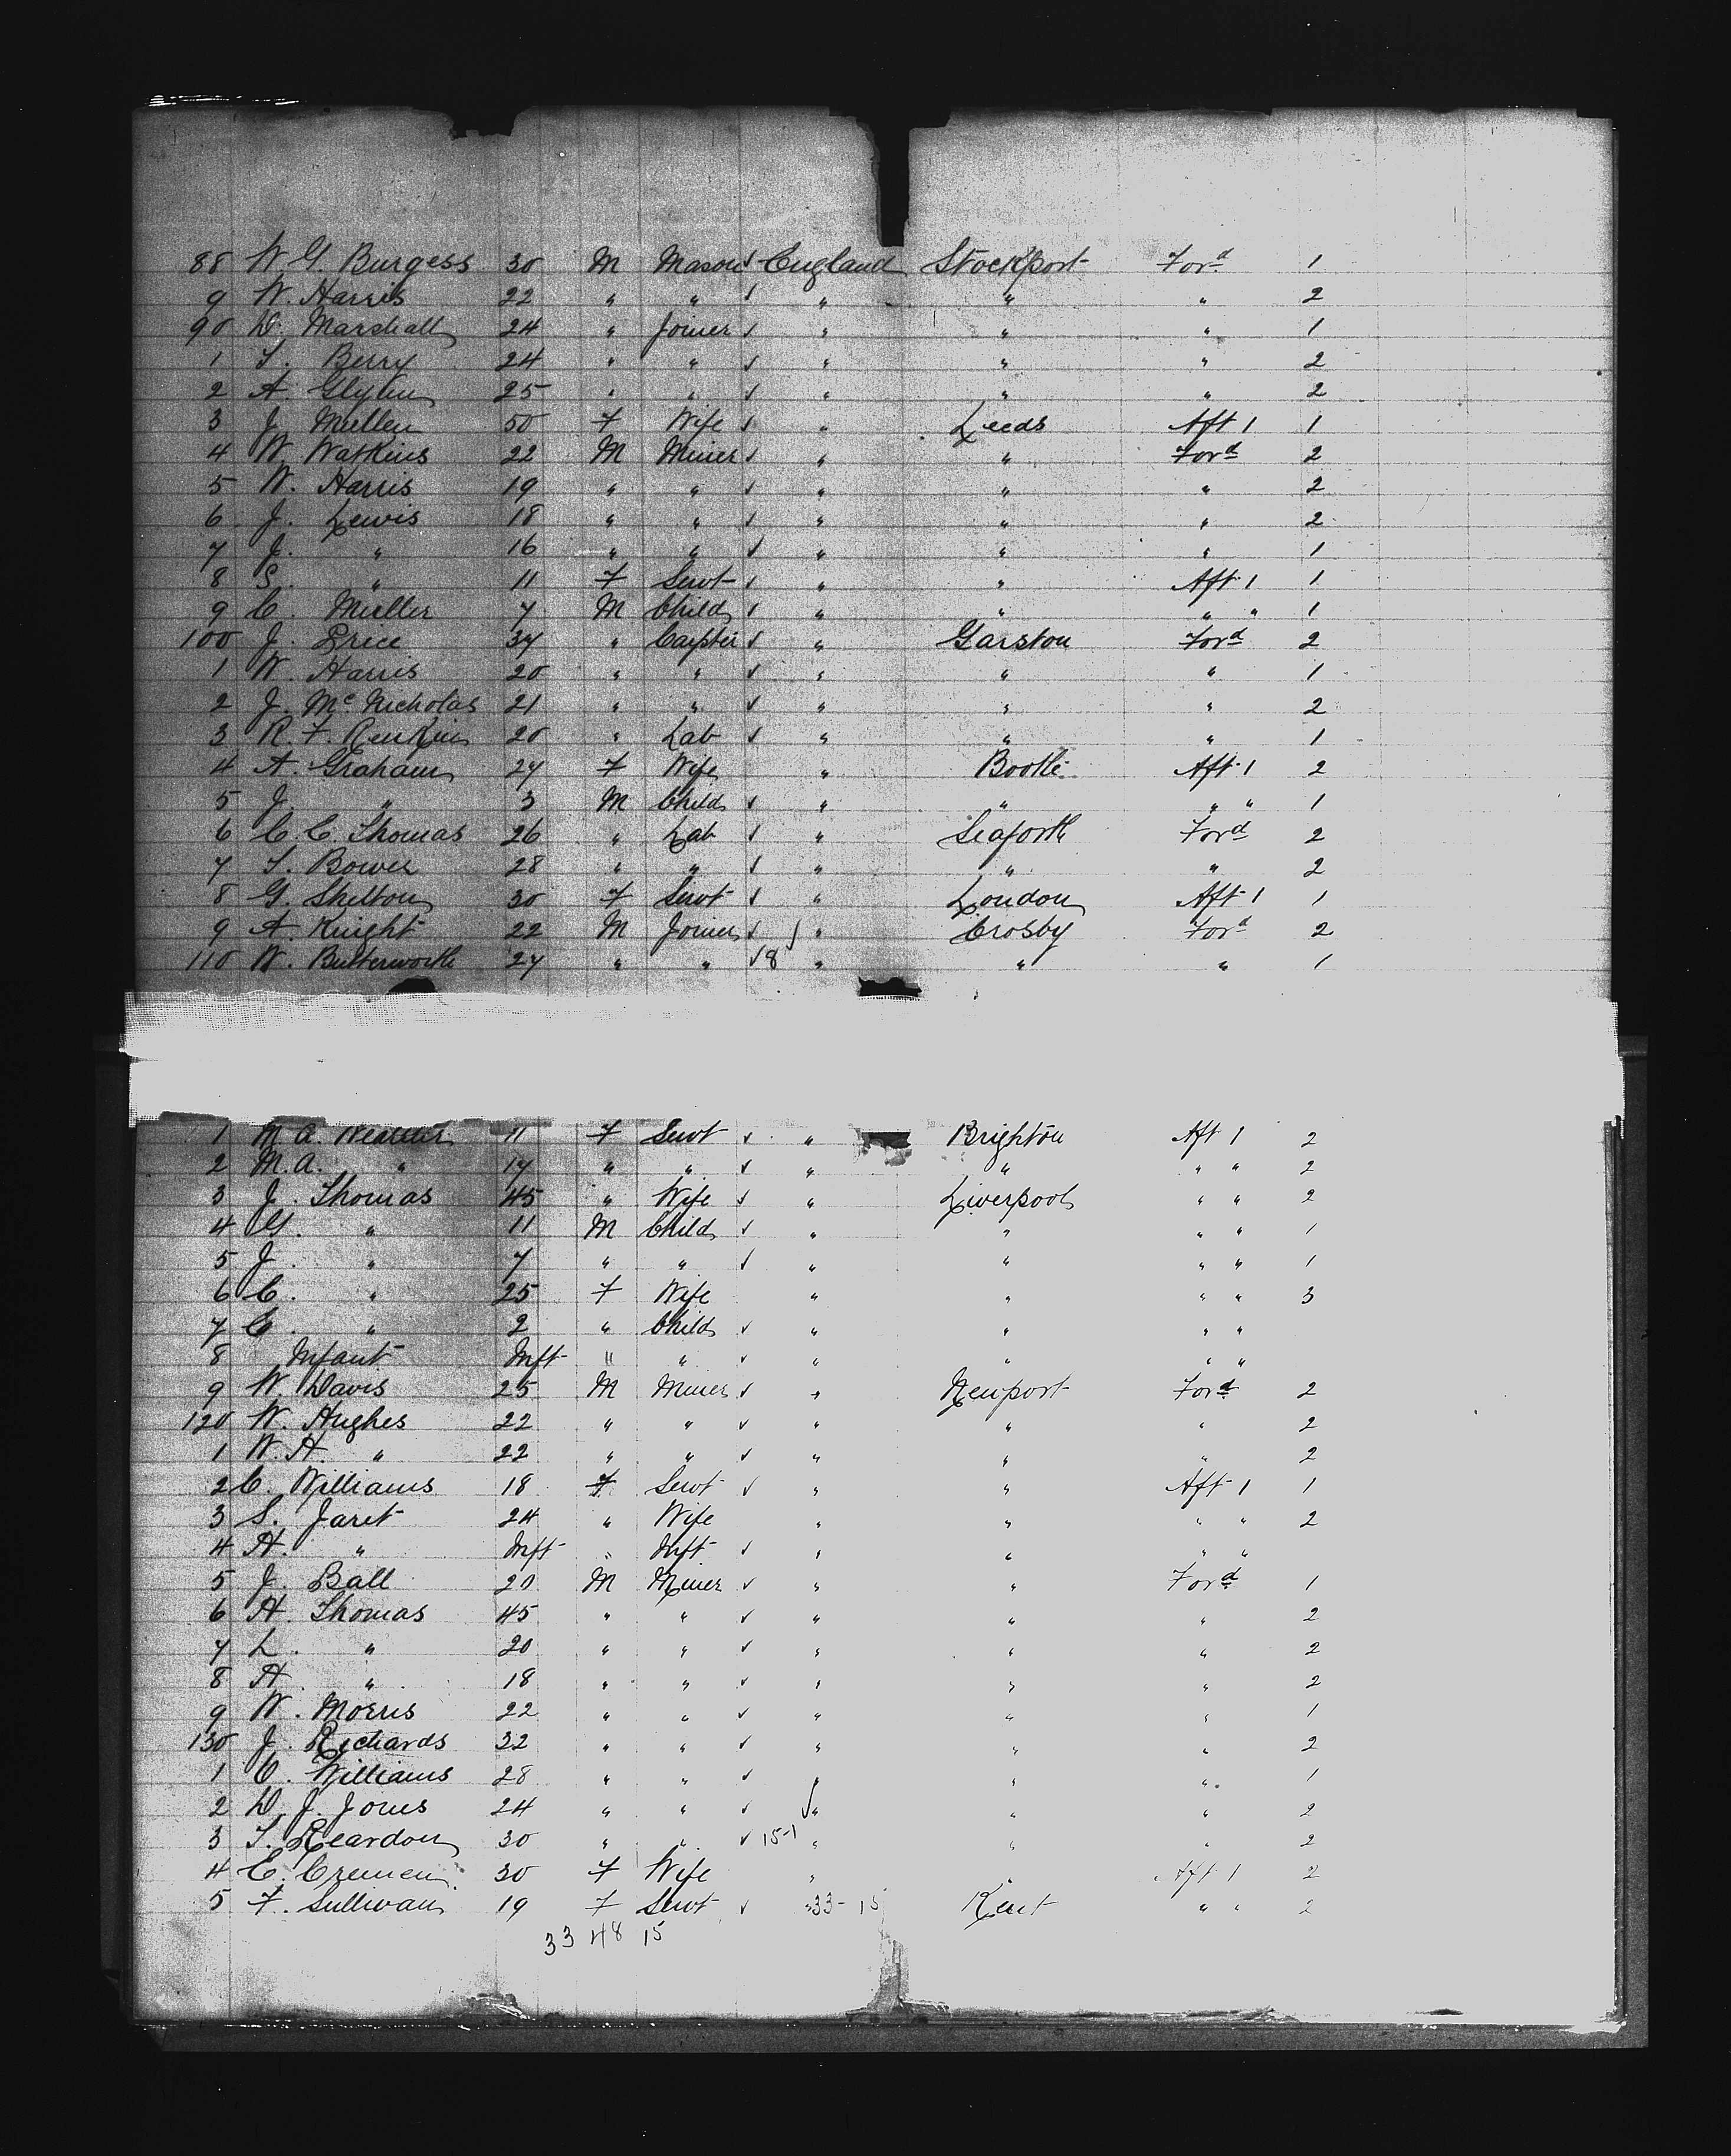 88 W. G. Burgess 30 M Mason ✓ England Stockport For^d 1
9 W. Harris 22 " " ✓ " " " 2
90 D. Marshall 24 " Joiner ✓ " " " 1
1 T. Berry 24 " " ✓ " " " 2
2 A. Glynn 25 " " ✓ " " " 2
3 J. Mullen 50 F Wife ✓ " Leeds Aft 1 1
4 W. Watkins 22 M Miner ✓ " " For^d 2
5 W. Harris 19 " " ✓ " " " 2
6 J. Lewis 18 " " ✓ " " " 2
7 J. " 16 " " ✓ " " " 1
8 S. " 11 F Servt ✓ " " Aft 1 1
9 C. Muller 7 M Child ✓ " " " " 1
100 J. Price 37 " Carpter ✓ " Garston For^d 2
1 W. Harris 20 " " ✓ " " " 1
2 J. McNicholas 21 " " ✓ " " " 2
3 R. F. 20 " Lab ✓ " " " 1
4 A. Graham 27 F Wife " Bootle Aft 1 2
5 J. " 3 M Child ✓ " " " " 1
6 C. C. Thomas 26 " Lab ✓ " Seaforth For^d 2
7 T. Bower 28 " " ✓ " " " 2
8 G. Shelton 30 F Servt ✓ " London Aft 1 1
9 A. Knight 22 M Joiner ✓ " Crosby For^d 2
110 W. Butterworth 27 " " ✓ 8 " " " 1
1 M. A. 11 F Servt ✓ " Brighton Aft 1 2
2 M. A. " 17 " " ✓ " " " " 2
3 J. Thomas 45 " Wife ✓ " Liverpool " " 2
4 G. " 11 M Child ✓ " " " " 1
5 J. " 7 " " ✓ " " " " 1
6 C. " 25 F Wife " " " " 3
7 C. " 2 " Child ✓ " " " "
8 Infant Inft " " ✓ " " " "
9 W. Davis 25 M Miner ✓ " Newport For^d 2
120 W. Hughes 22 " " ✓ " " " 2
1 W. H. " 22 " " ✓ " " " 2
2 C. Williams 18 F Servt ✓ " " Aft 1 1
3 S. Jaret 24 " Wife " " " " 2
4 H. " Inft " Inft ✓ " " " "
5 J. Ball 20 M Miner ✓ " " For^d 1
6 H. Thomas 45 " " ✓ " " " 2
7 L. " 20 " " ✓ " " " 2
8 H. " 18 " " ✓ " " " 2
9 W. Morris 22 " " ✓ " " " 1
130 J. Richards 32 " " ✓ " " " 2
1 C. Williams 28 " " ✓ " " " 1
2 D. J. Jones 24 " " ✓ ✓ " " " 2
3 T. Reardon 30 " " ✓ 15-1 " " " 2
4 E. Cremen 30 F Wife " " Aft 1 2
5 F. Sullivan 19 F Servt ✓ " 33-15 Kent " " 2
33 48 15